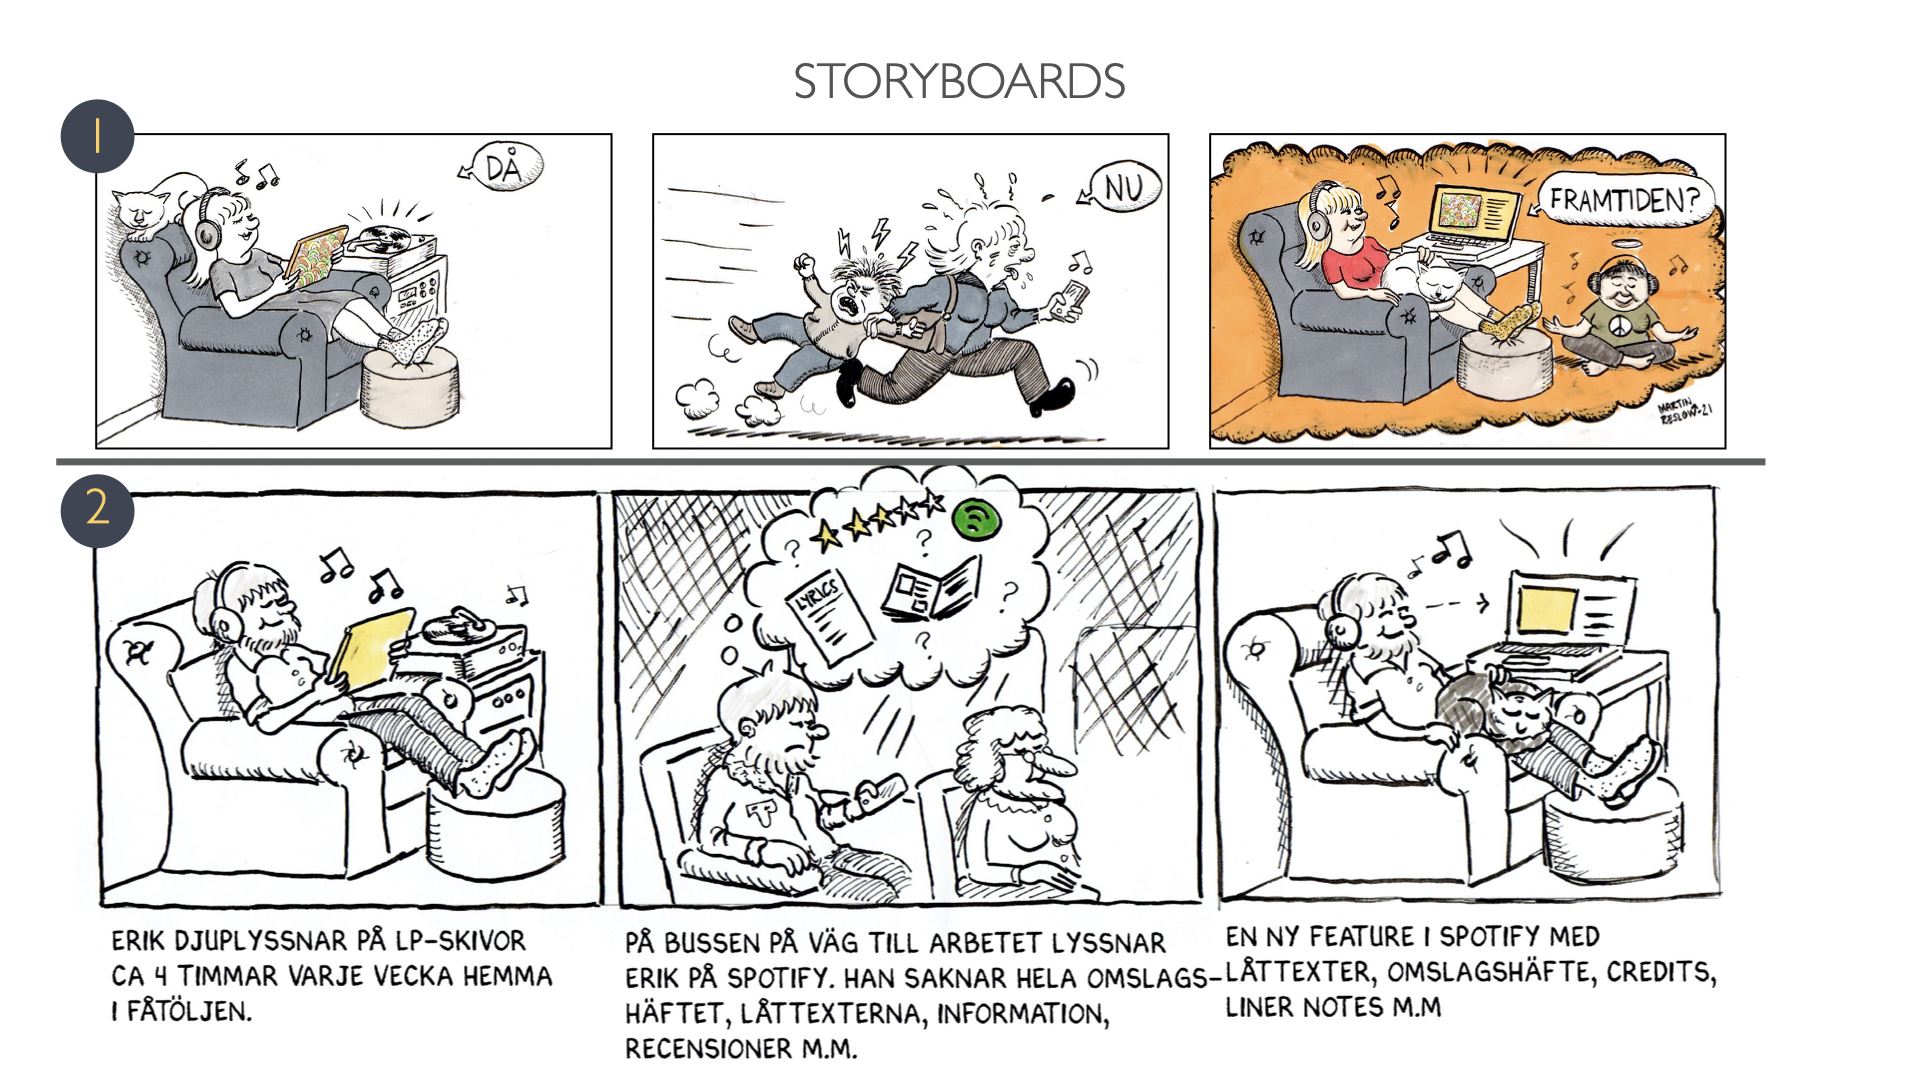 STORYBOARDS
1
DÅ
NU
FRAMTIDEN?
MARTIN
RESLOW-21
2
LYRICS
ERIK DJUPLYSSNAR PÅ LP-SKIVOR
CA 4 TIMMAR VARJE VECKA HEMMA
I FÅTÖLJEN.
PÅ BUSSEN PÅ VÄG TILL ARBETET LYSSNAR
ERIK PÅ SPOTIFY. HAN SAKNAR HELA OMSLAGS-
HÄFTET, LÅTTEXTERNA, INFORMATION,
RECENSIONER M.M.
EN NY FEATURE I SPOTIFY MED
LÅTTEXTER, OMSLAGSHÄFTE, CREDITS,
LINER NOTES M.M